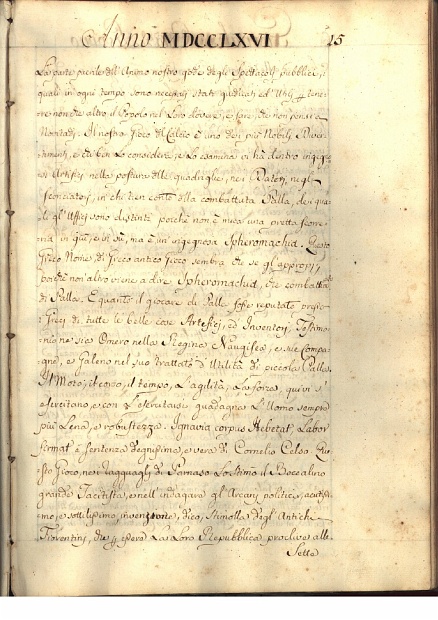 Anno MDCCLXVI 15
La parte preale dell'Animo nostro gode degli Spettacoli pubblici, i
quali in ogni tempo sono necessarj stati giudicati ed Utili p tener
re non che altro il Popolo nel Loro dovere, e fare, che non pensi a
Novitadi. Il nostro Gioco del Calcio è uno dei più Nobili Diver
timenti, e chi ben Lo considera, e Lo esamina vi hà dentro ingegno
ed Artifizi nella postura delle quadriglie, nei Datori, negli
Sconciatori, in chi tien conto della combattuta Palla, dei qua
li gl'Uffizi sono distinti poiché non è mica una pretta scorre
ria in giù, e in sù, ma è un'ingegnosa Spheromachia. Questo
Greco Nome di Greco antico Gioco sembra che se gl'approprj,
poiché non altro viene a dire Spheromachia, che combattim.to
di Palla. E quanto il giocare di Palle fosse reputato presso
i Greci di tutte le belle cose Artefici, ed Inventori, Testimo
nio ne sia Omero nella Regina Naugisea, e sue Compa
gne, e Galeno nel suo Trattato d'Utilità di piccola Palla.
Il Moto, il corso, il tempo, L'agilità, La forza, quivi s'
esercitano, e con L'esercitarsi guadagna L'Uomo sempre
più Lena, e robustezza. Ignavia corpus Hebetat, Labor
firmat è sentenza degnissima, e vera di Cornelio Celso. Que
sto Gioco, nei Ragguagli di Parnaso Lo stimò il Boccalino
grande Tacitista, e nell'indagare gl'Arcani politici, acutissi
mo, e sottilissimo invenzione, dico, stimolla degl'Antichi
Fiorentini, che p essere La Loro Repubblica proclive alle
Sette